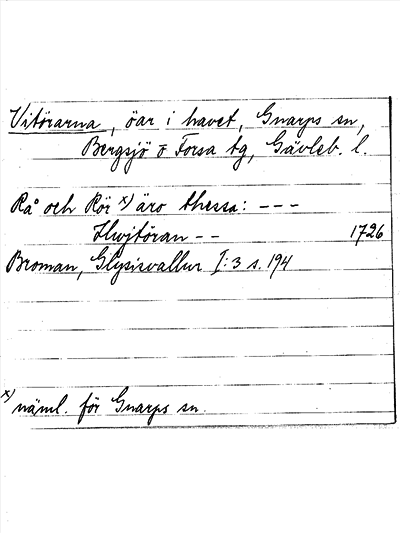 Vitörarna, öar i havet, Gnarps sn,
Bergsjö o Forsa tg, Gävleb. l.
Rå och Rör x) äro thessa: ---
Hwitöran -- 1726
Broman, Glysisvallur I:3 s. 194
x) näml. för Gnarps sn